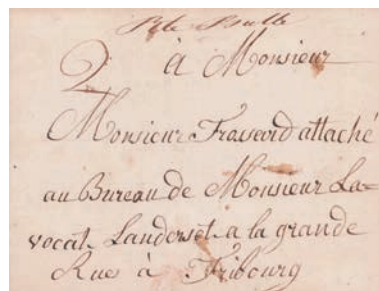 Pde Bulle
2 à Monsieur
Monsieur Frossard attaché
au Bureau de Monsieur La=
vocat Landerset a la grande
Rue à Fribourg